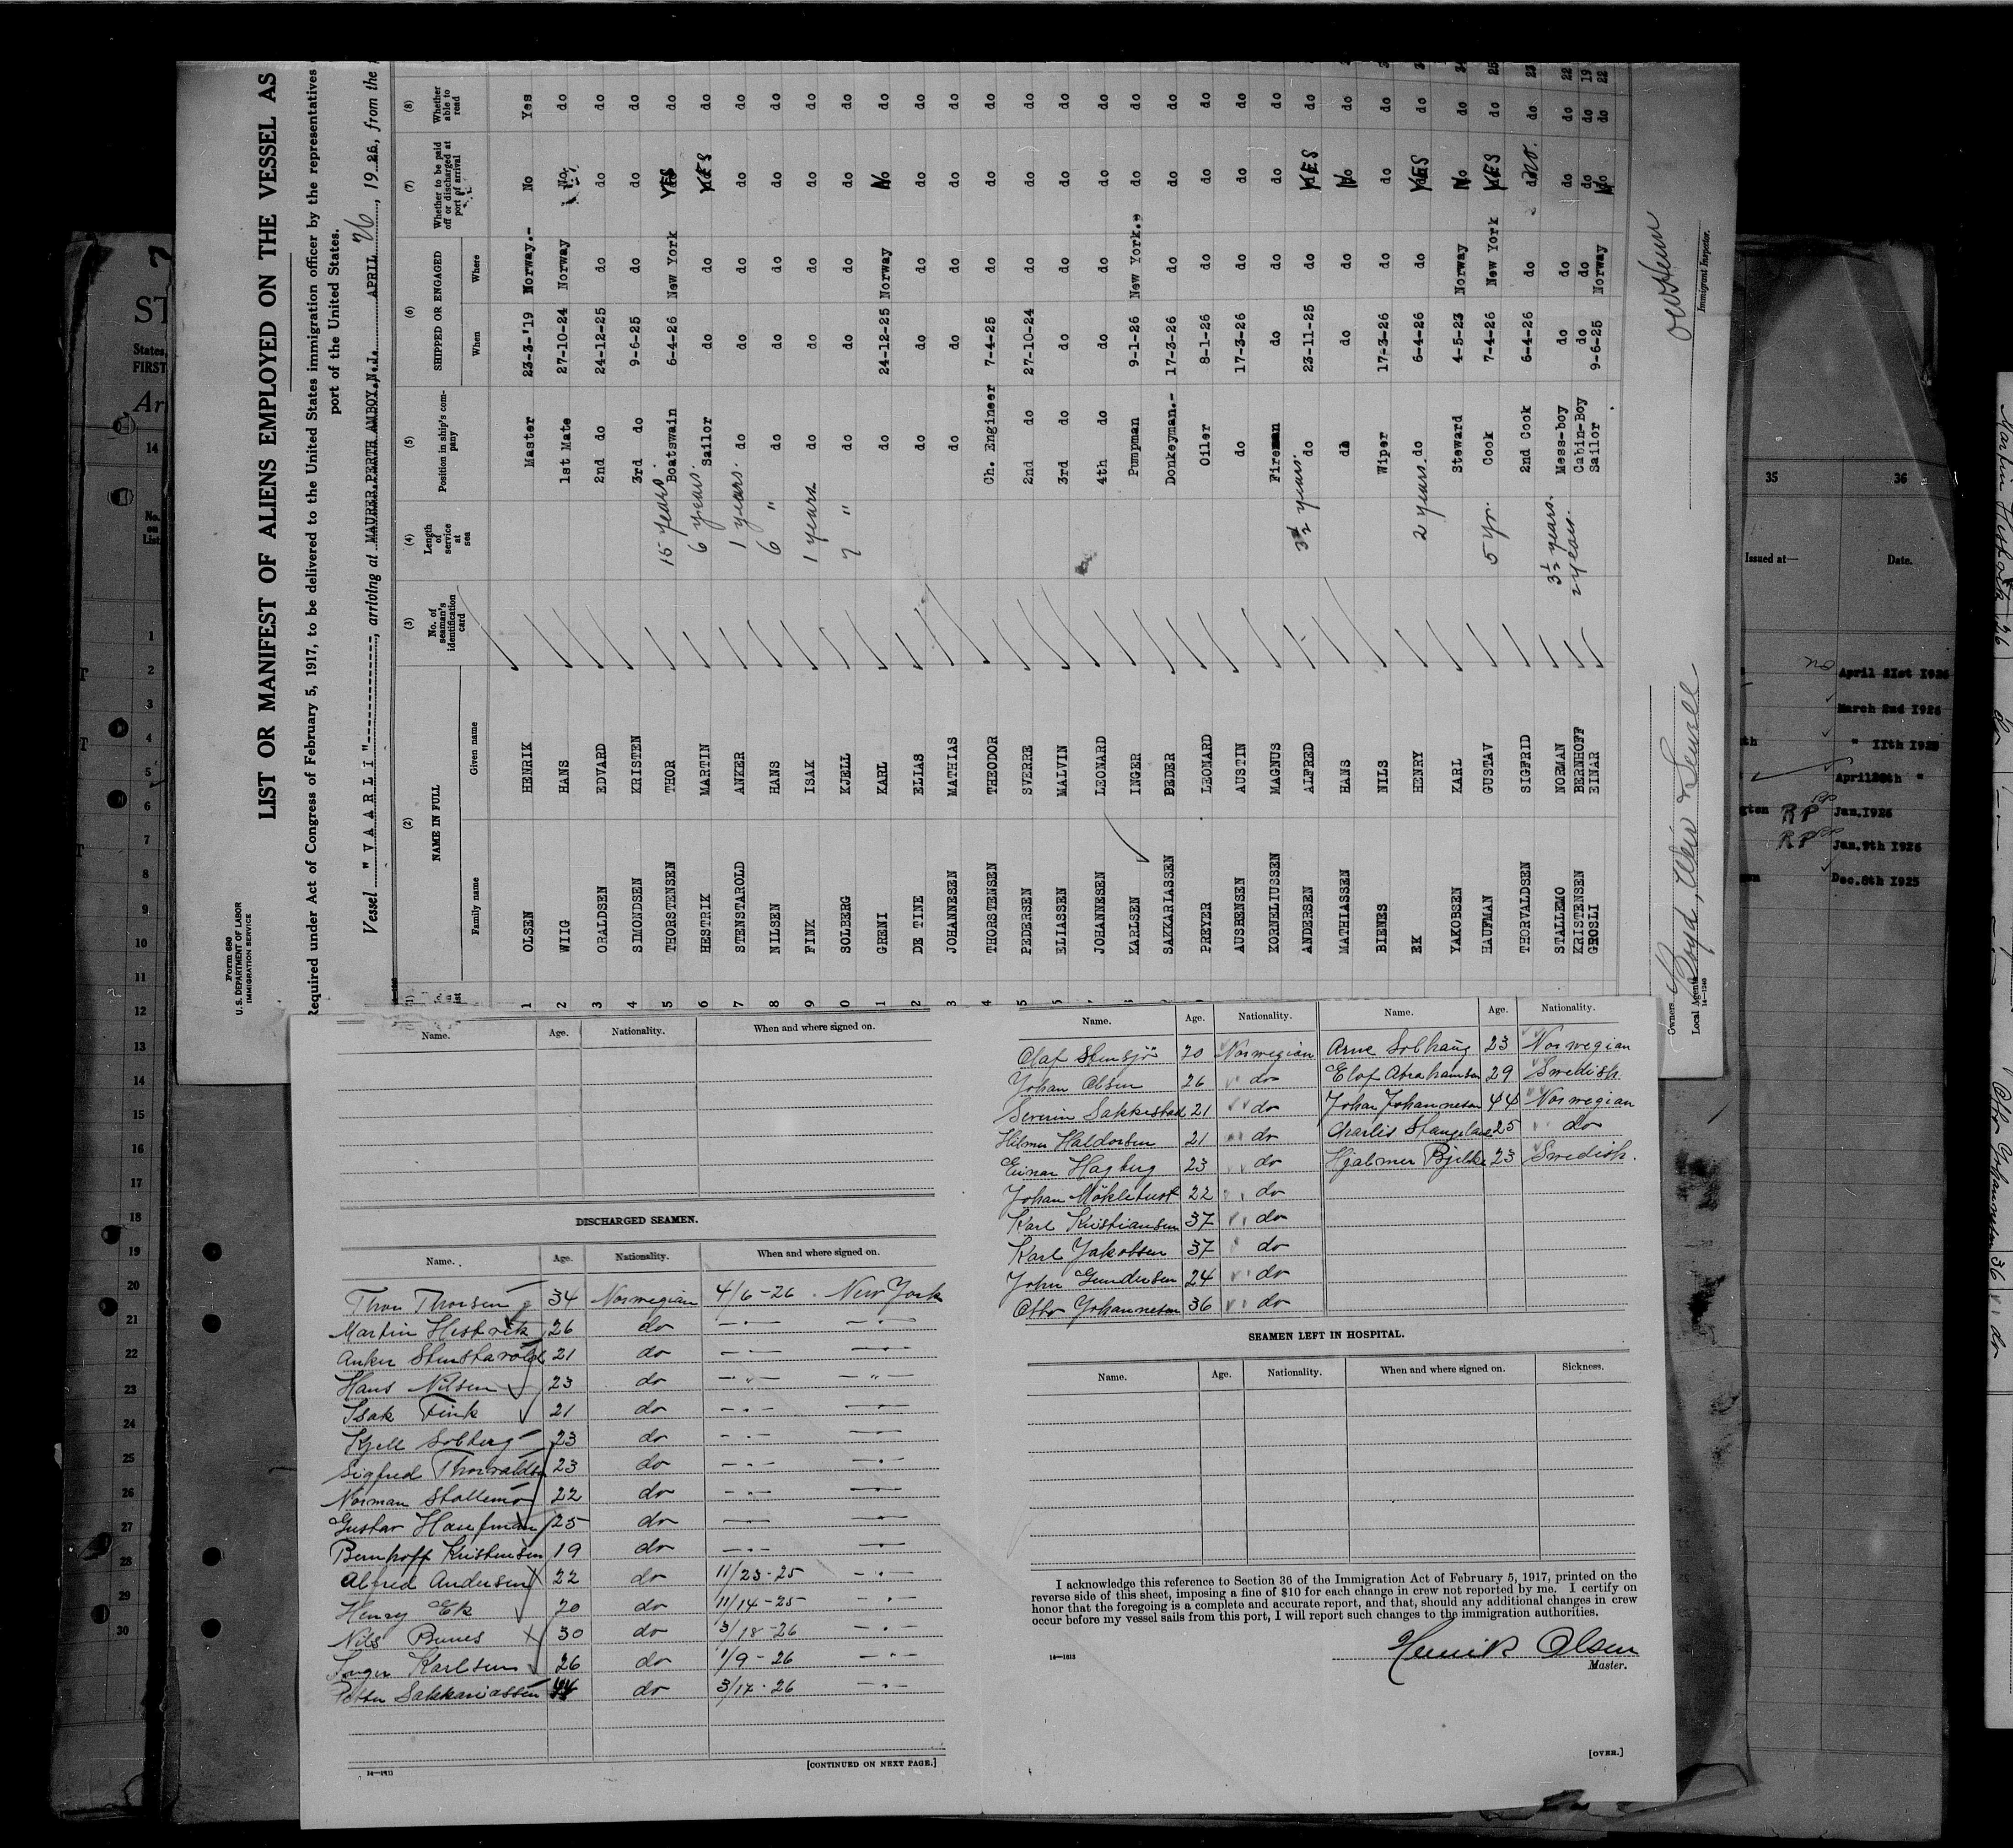 Form 680
U. S. DEPARTMENT OF LABOR
IMMIGRATION SERVICE
LIST OR MANIFEST OF ALIENS EMPLOYED ON THE VESSEL AS
Required under Act of Congress of February 5, 1917, to be delivered to the United States immigration officer by the representatives
port of the United States.
Vessel "VAARLI", arriving at MAURER, PERTH AMBOY, N.J. APRIL 26, 1926, from the
(1) (2) (3) (4) (5) (6) (7) (8)
NAME IN FULL
Family name Given name
No. of seaman's identification card
Length of service at sea
Position in ship's company
SHIPPED OR ENGAGED
When Where
Whether to be paid off or discharged at port of arrival
Whether able to read
1 OLSEN HENRIK Master 23-3-'19 Norway.- No Yes
2 WIIG HANS 1st Mate 27-10-24 Norway No do
3 ORALDSEN EDVARD 2nd do 24-12-25 do do do
4 SIMONDSEN KRISTEN 3rd do 9-6-25 do do do
5 THORSTENSEN THOR 15 years. Boatswain 6-4-26 New York YES do
6 HESTRIK MARTIN 6 years. Sailor do do YES do
7 STENSTAROLD ANKER 1 years. do do do do do
8 NILSEN HANS 6 " do do do do do
9 FINK ISAK 1 years do do do do do
0 SOLBERG KJELL 7 " do do do do do
1 GRENI KARL do 24-12-25 Norway No do
2 DE TINE ELIAS do do do do do
3 JOHANNESEN MATHIAS do do do do do
4 THORSTENSEN THEODOR Ch. Engineer 7-4-25 do do do
5 PEDERSEN SVERRE 2nd do 27-10-24 do do do
5 ELIASSEN MALVIN 3rd do do do do do
JOHANNESEN LEONARD 4th do do do do do
KARLSEN INGER Pumpman 9-1-26 New York.- do do
SAKKARIASSEN PEDER Donkeyman.- 17-3-26 do do do
PREYER LEONARD Oiler 8-1-26 do do do
AUSHENSEN AUSTIN do 17-3-26 do do do
KORNELIUSSEN MAGNUS Fireman do do do do
ANDERSEN ALFRED 3½ years. do 23-11-25 do YES do
MATHIASSEN HANS do do do No do
BIENES NILS Wiper 17-3-26 do do do
EK HENRY 2 years. do 6-4-26 do YES do
YAKOBSEN KARL Steward 4-5-23 Norway No do
HAUFMAN GUSTAV 5 yr. Cook 7-4-26 New York YES do 25
THORVALDSEN SIGFRID 2nd Cook 6-4-26 do do no. do 23
STALLEMO NORMAN 3½ years. Mess-boy do do do do 22
KRISTENSEN BERNHOFF 2 years. Cabin-Boy do do do do 19
GROSLI EINAR Sailor 9-6-25 Norway No do 22
Owners
Local Agents Boyd, Weir & Sewell
14—1240
Immigrant Inspector.
Name. Age. Nationality. When and where signed on.
DISCHARGED SEAMEN.
Name. Age. Nationality. When and where signed on.
Thor Thorsen 34 Norwegian 4/6-26 . New York
Martin Hestvik 26 do — " — — " —
Anker Stenstarold 21 do — " — — " —
Hans Nilsen 23 do — " — — " —
Isak Fink 21 do — " — — " —
Kjell Solberg 23 do — " — — " —
Sigfred Thorvaldsen 23 do — " — — " —
Norman Stallemo 22 do — " — — " —
Gustav Haufman 25 do — " — — " —
Bernhoff Kristensen 19 do — " — — " —
Alfred Andersen 22 do 11/23-25 — " —
Henry Ek 20 do 11/14-25 — " —
Nils Bienes 30 do 3/18-26 — " —
Inger Karlsen 26 do 1/9-26 — " —
Petter Sakkariassen 44 do 3/17-26 — " —
14—1613
[CONTINUED ON NEXT PAGE.]
Name. Age. Nationality. Name. Age. Nationality.
Olaf Stensjö 20 Norwegian Arne Solhaug 23 Norwegian
Johan Olsen 26 do Elof Abrahamsen 29 Swedish.
Severin Sakkestad 21 do Johan Johannesen 44 Norwegian
Hilmer Haldorsen 21 do Charlis Stangeland 25 do
Einar Hagberg 23 do Hjalmer Bjelke 23 Swedish.
Johan Mökletust 22 do
Karl Kristiansen 37 do
Karl Jakobsen 37 do
John Gundersen 24 do
Otto Johannesen 36 do
SEAMEN LEFT IN HOSPITAL.
Name. Age. Nationality. When and where signed on. Sickness.
I acknowledge this reference to Section 36 of the Immigration Act of February 5, 1917, printed on the
reverse side of this sheet, imposing a fine of $10 for each change in crew not reported by me. I certify on
honor that the foregoing is a complete and accurate report, and that, should any additional changes in crew
occur before my vessel sails from this port, I will report such changes to the immigration authorities.
Henrik Olsen
Master.
14—1613
[OVER.]
ST
States,
FIRST
Ar
14
No. on List
1
2
3
4
5
6
7
8
9
10
11
12
13
14
15
16
17
18
19
20
21
22
23
24
25
26
27
28
29
30
35 36
Issued at— Date.
no April 21st 1926
March 2nd 1926
" 11th 1926
April 20th "
gton RP Jan. 1926
RP Jan. 9th 1926
Dec. 8th 1925
Otto Johannesen 36 do